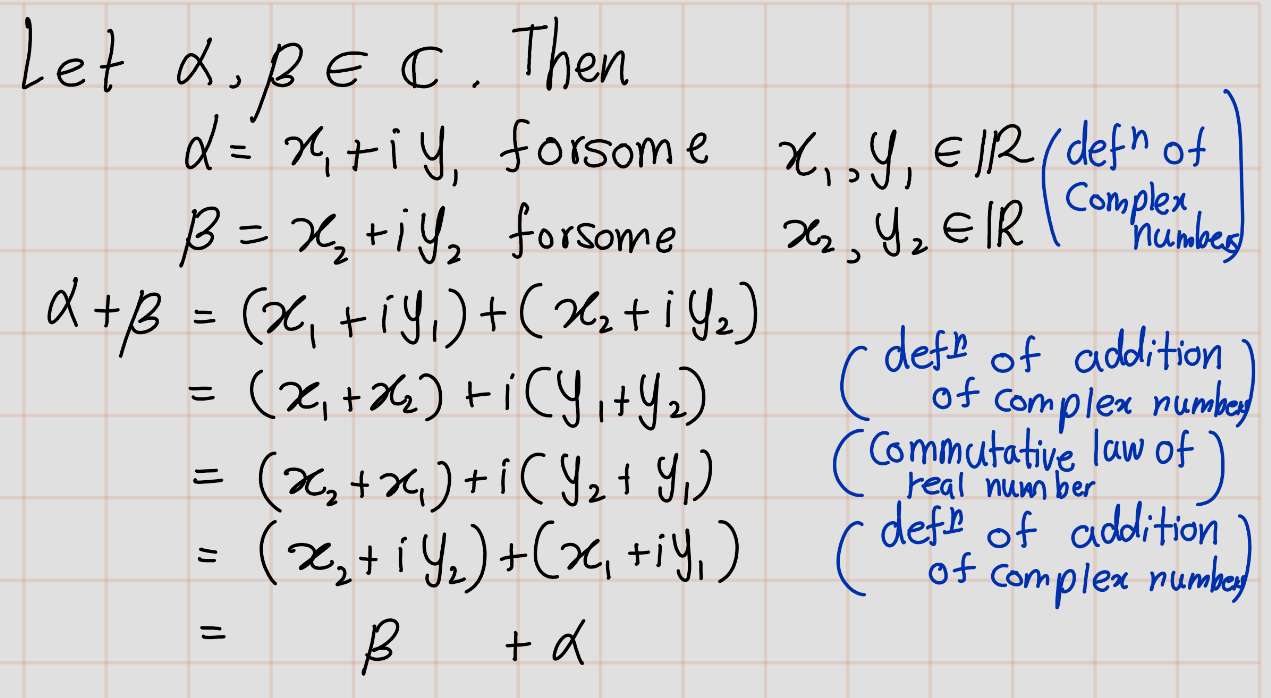 Let α, β ∈ ℂ. Then
α = x₁ + i y₁ forsome x₁, y₁ ∈ ℝ (defⁿ of
β = x₂ + i y₂ forsome x₂, y₂ ∈ ℝ Complex numbers)
α + β = (x₁ + i y₁) + (x₂ + i y₂)
= (x₁ + x₂) + i (y₁ + y₂) (defⁿ of addition of complex number)
= (x₂ + x₁) + i (y₂ + y₁) (Commutative law of real number)
= (x₂ + i y₂) + (x₁ + i y₁) (defⁿ of addition of complex number)
= β + α